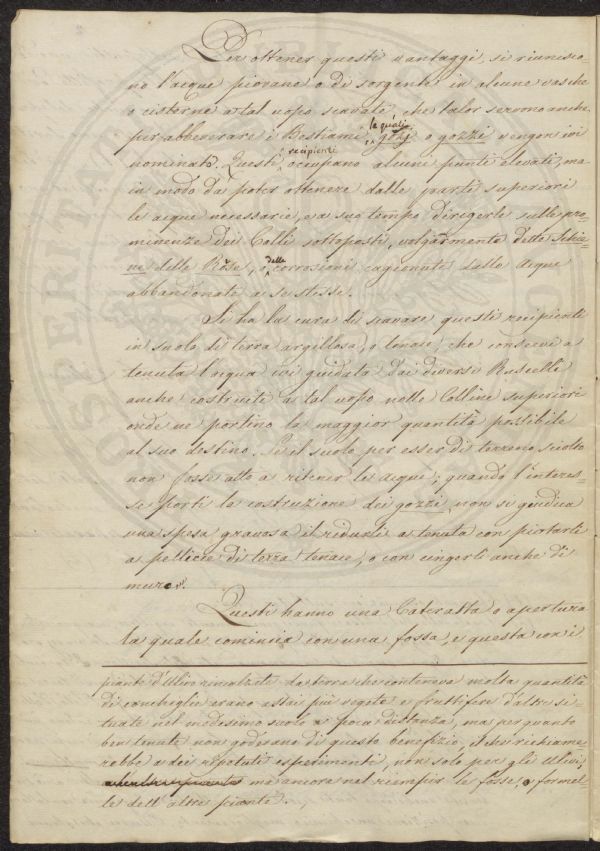 Per ottener questi vantaggi, si riunisco-
no l'acque piovane o di sorgente in alcune vasche
o cisterne a tal uopo scavate, che talor servono anche
per abbeverare i Bestiami, le quali gozzj o gozzi vengon ivi
nominate. Questi recipienti occupano alcuni punti elevati, ma
in modo da poter ottenere dalle parti superiori
le acque necessarie, e a suo tempo dirigerle sulle pro-
minenze dei Colli sottoposti, volgarmente dette Schie-
ne delle Rose, o delle corrosioni cagionate dallo Acque
abbandonate a se stesse.
Si ha la cura di scavare questi recipienti
in suolo di terra argillosa, o tenace, che conservi a
tenuta l'acqua ivi guidata dai diversi Ruscelli
anche costruiti a tal uopo nelle Colline superiori
onde ne portino la maggior quantità possibile
al suo destino. Se il suolo per esser di terreno sciolto
non fosse atto a ritener le acque; quando l'interes-
se porti la costruzione dei gozzi, non si giudica
una spesa gravosa il ridurli a tenuta con piotarli
a pellicce di terra tenace, o con cingerli anche di
muro.
Questi hanno una Cateratta o apertura
la quale comincia con una fossa, e questa con i
piante d'Ulivo rincalzate da terra che conteneva molta quantità
di conchiglie erano assai più vegete e fruttifere d'altre si-
tuate nel medesimo suolo a poca distanza, ma per quanto
ben tenute non godevano di questo benefizio, Idee richiame-
rebbe a dei reputati esperimenti, non solo per gli Ulivi,
ma ancora nel riempir le fosse, o formel-
le dell'altre piante.
PROSPERITAT